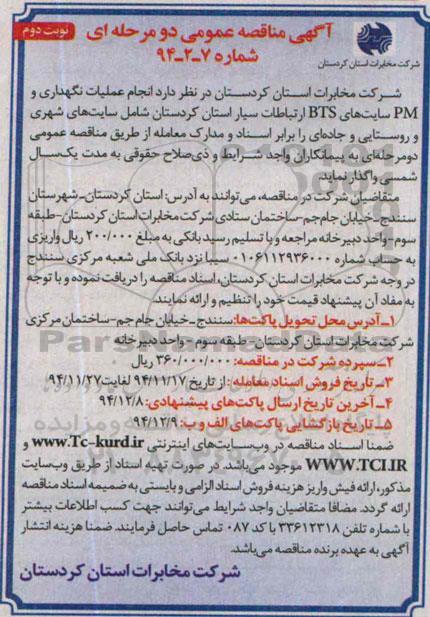 نوبت دوم
آگهی مناقصه عمومی دو مرحله ای
شماره ۷-۲-۹۴
شرکت مخابرات استان کردستان
شرکت مخابرات استان کردستان در نظر دارد انجام عملیات نگهداری و
PM سایت‌های BTS ارتباطات سیار استان کردستان شامل سایت‌های شهری
و روستایی و جاده‌ای را برابر اسناد و مدارک معامله از طریق مناقصه عمومی
دومرحله‌ای به پیمانکاران واجد شرایط و ذی‌صلاح حقوقی به مدت یک‌سال
شمسی واگذار نماید.
متقاضیان شرکت در مناقصه، می‌توانند به آدرس: استان کردستان-شهرستان
سنندج-خیابان جام‌جم-ساختمان ستادی شرکت مخابرات استان کردستان-طبقه
سوم-واحد دبیرخانه مراجعه و با تسلیم رسید بانکی به مبلغ ۲۰۰/۰۰۰ ریال واریزی
به حساب شماره ۰۱۰۶۱۱۲۹۳۶۰۰۰ سیبا نزد بانک ملی شعبه مرکزی سنندج
در وجه شرکت مخابرات استان کردستان، اسناد مناقصه را دریافت نموده و با توجه
به مفاد آن پیشنهاد قیمت خود را تنظیم و ارائه نمایند.
۱-آدرس محل تحویل پاکت‌ها: سنندج-خیابان جام جم-ساختمان مرکزی
شرکت مخابرات استان کردستان-طبقه سوم-واحد دبیرخانه
۲-سپرده شرکت در مناقصه: ۳۶۰/۰۰۰/۰۰۰ ریال
۳-تاریخ فروش اسناد معامله: از تاریخ ۹۴/۱۱/۱۷ لغایت ۹۴/۱۱/۲۷
۴-آخرین تاریخ ارسال پاکت‌های پیشنهادی: ۹۴/۱۲/۸
۵-تاریخ بازگشایی پاکت‌های الف و ب: ۹۴/۱۲/۹
ضمنا اسناد مناقصه در وب‌سایت‌های اینترنتی www.Tc-kurd.ir و
WWW.TCI.IR موجود می‌باشد. در صورت تهیه اسناد از طریق وب‌سایت
مذکور، ارائه فیش واریز هزینه فروش اسناد الزامی و بایستی به ضمیمه اسناد مناقصه
ارائه گردد. مضافا متقاضیان واجد شرایط می‌توانند جهت کسب اطلاعات بیشتر
با شماره تلفن ۳۳۶۱۲۳۱۸ با کد ۰۸۷ تماس حاصل فرمایند. ضمنا هزینه انتشار
آگهی به عهده برنده مناقصه می‌باشد.
شرکت مخابرات استان کردستان